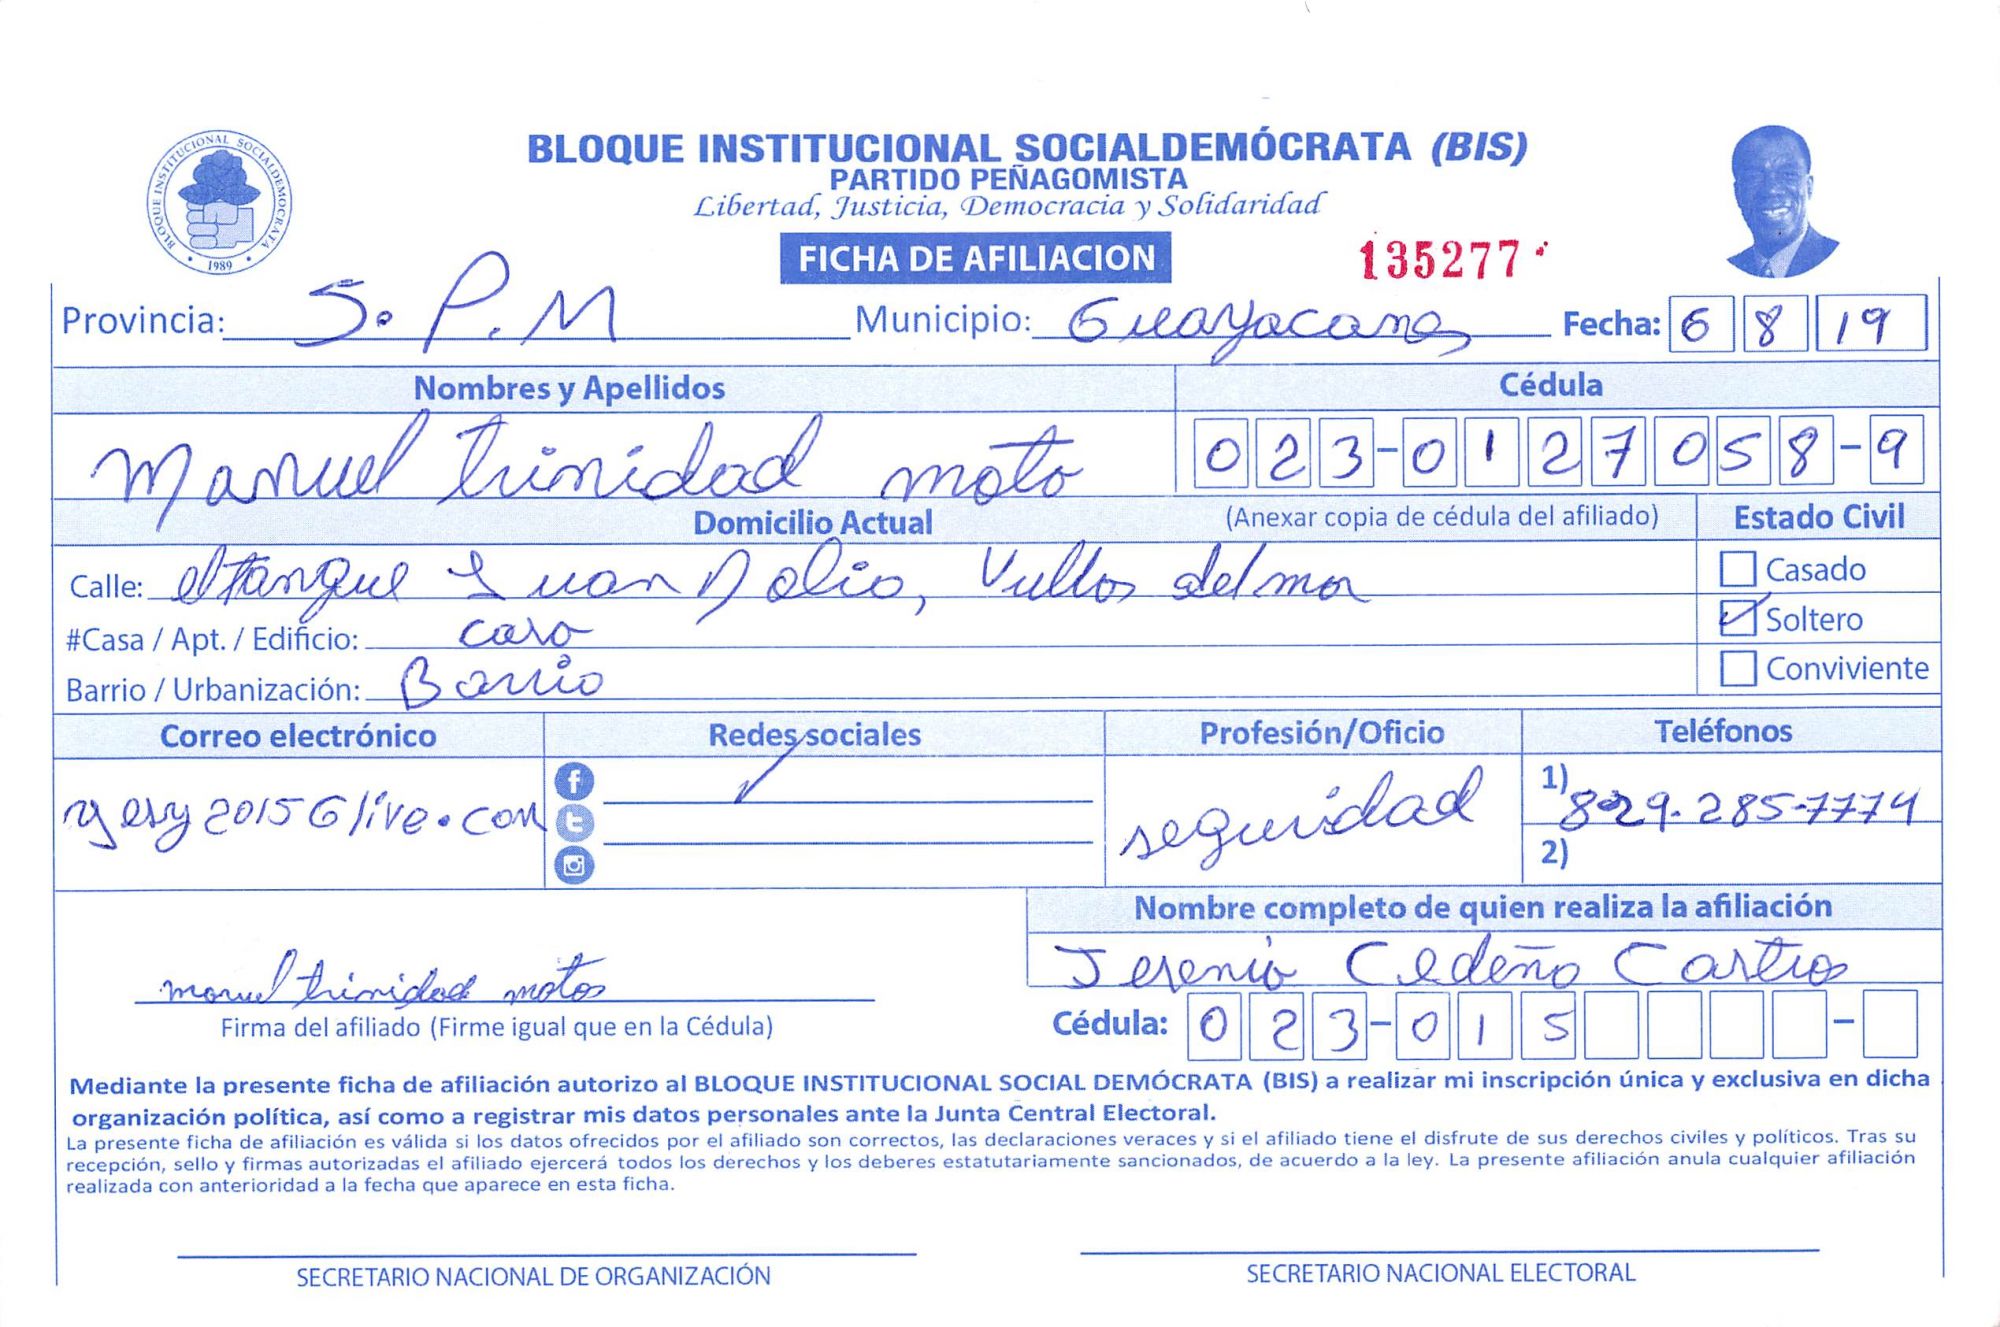 BLOQUE INSTITUCIONAL SOCIALDEMOCRATA
1989
BLOQUE INSTITUCIONAL SOCIALDEMÓCRATA (BIS)
PARTIDO PEÑAGOMISTA
Libertad, Justicia, Democracia y Solidaridad
FICHA DE AFILIACION 135277
Provincia: S. P. M Municipio: Guayacanes Fecha: 6 8 19
Nombres y Apellidos Cédula
Manuel trinidad moto 023-0127058-9
Domicilio Actual (Anexar copia de cédula del afiliado) Estado Civil
Calle: Juan Dolio, del mar Casado
#Casa / Apt. / Edificio: casa Soltero
Barrio / Urbanización: Barrio Conviviente
Correo electrónico Redes sociales Profesión/Oficio Teléfonos
yesy2015Glive.com seguridad 1) 829-285-7774
2)
Nombre completo de quien realiza la afiliación
Cedeño Castro
manuel trinidad motos
Firma del afiliado (Firme igual que en la Cédula) Cédula: 023-015 -
Mediante la presente ficha de afiliación autorizo al BLOQUE INSTITUCIONAL SOCIAL DEMÓCRATA (BIS) a realizar mi inscripción única y exclusiva en dicha
organización política, así como a registrar mis datos personales ante la Junta Central Electoral.
La presente ficha de afiliación es válida si los datos ofrecidos por el afiliado son correctos, las declaraciones veraces y si el afiliado tiene el disfrute de sus derechos civiles y políticos. Tras su
recepción, sello y firmas autorizadas el afiliado ejercerá todos los derechos y los deberes estatutariamente sancionados, de acuerdo a la ley. La presente afiliación anula cualquier afiliación
realizada con anterioridad a la fecha que aparece en esta ficha.
SECRETARIO NACIONAL DE ORGANIZACIÓN SECRETARIO NACIONAL ELECTORAL